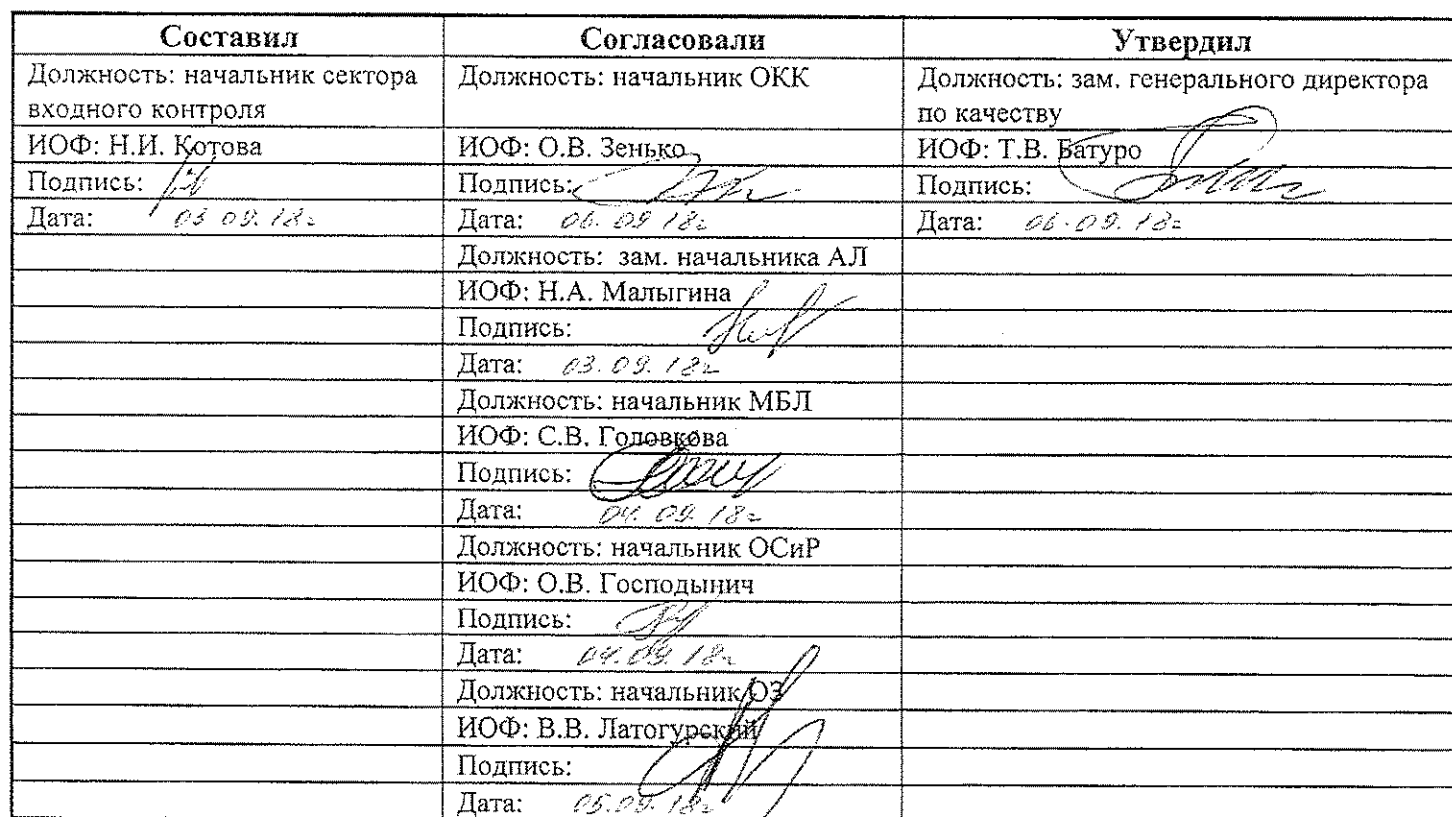 Составил Согласовали Утвердил
Должность: начальник сектора Должность: начальник ОКК Должность: зам. генерального директора
входного контроля по качеству
ИОФ: Н.И. Котова ИОФ: О.В. Зенько ИОФ: Т.В. Батуро
Подпись: Подпись: Подпись:
Дата: 03.09.18г Дата: 06.09.18г Дата: 06.09.18г
Должность: зам. начальника АЛ
ИОФ: Н.А. Малыгина
Подпись:
Дата: 03.09.18г
Должность: начальник МБЛ
ИОФ: С.В. Головкова
Подпись:
Дата: 04.09.18г
Должность: начальник ОСиР
ИОФ: О.В. Господынич
Подпись:
Дата: 04.09.18г
Должность: начальник ОЗ
ИОФ: В.В. Латогурский
Подпись:
Дата: 05.09.18г